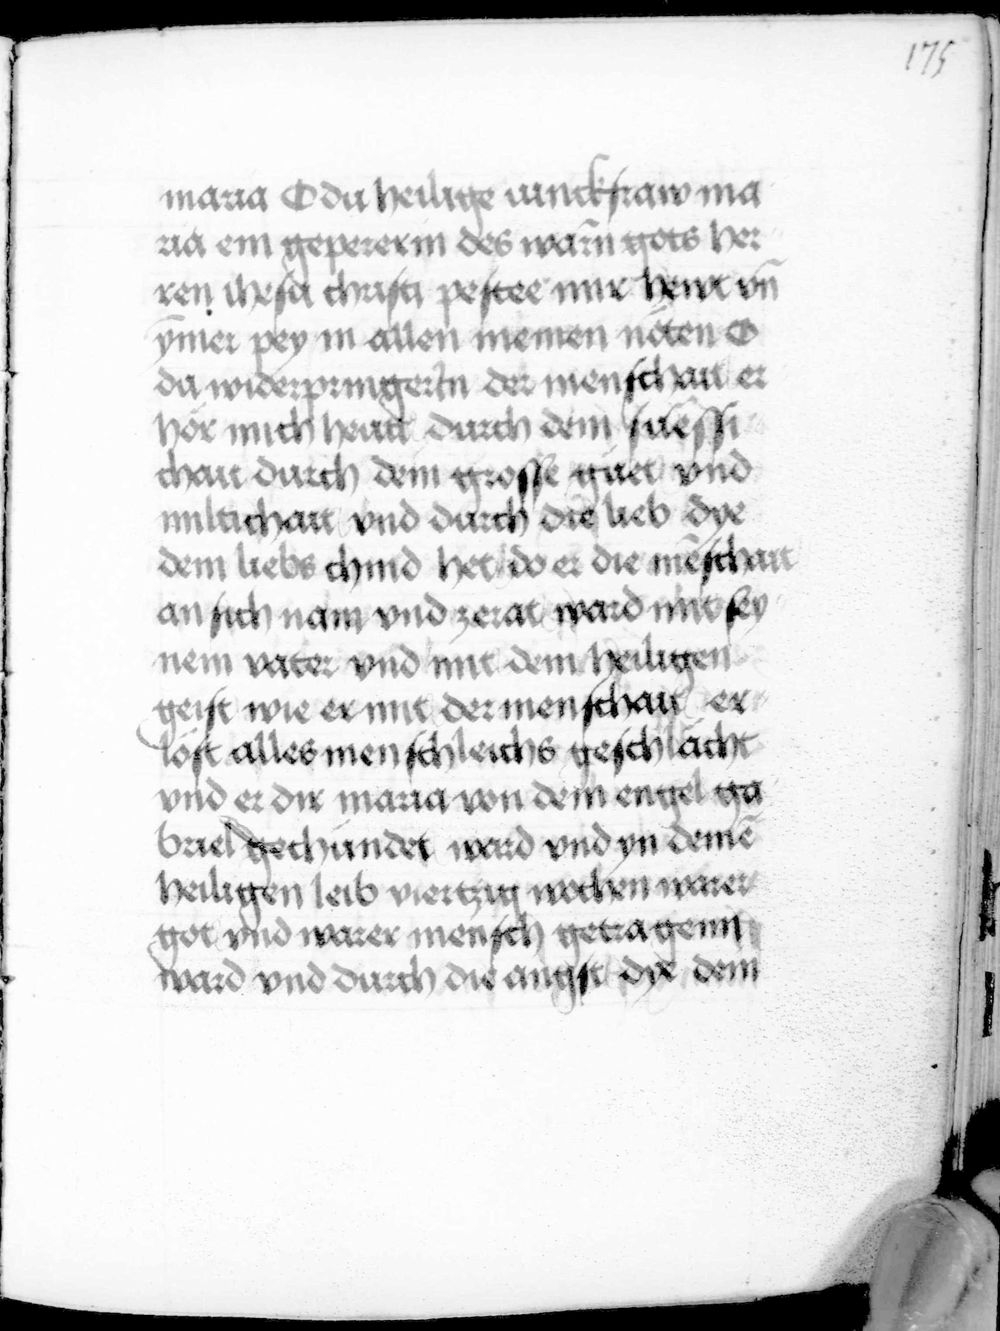 175
maria O du heilige iunckfraw ma
ria ein gepererin des warn̄ gots her
ren ihesu christi pestee mir hewt vn̄
ȳmer pey in allen meinen nöten O
du widerpringerin der menschait er
hör mich hewtt durch dein süessi
chait durch dein grosse güet vnd
miltichait vnd durch die lieb dye
dein liebs chind het do er die mēschait
an sich nam vnd zerat ward mit sey
nem vater vnd mit dem heiligen
geist wie er mit der menschait er
löst alles menschleichs geschlächt
vnd er dir maria von dem engel ga
briel gechündet ward vnd yn deinē
heiligen leib viertzig wochen warer
got vnd warer mensch getragenn
ward vnd durch die angst dye dein